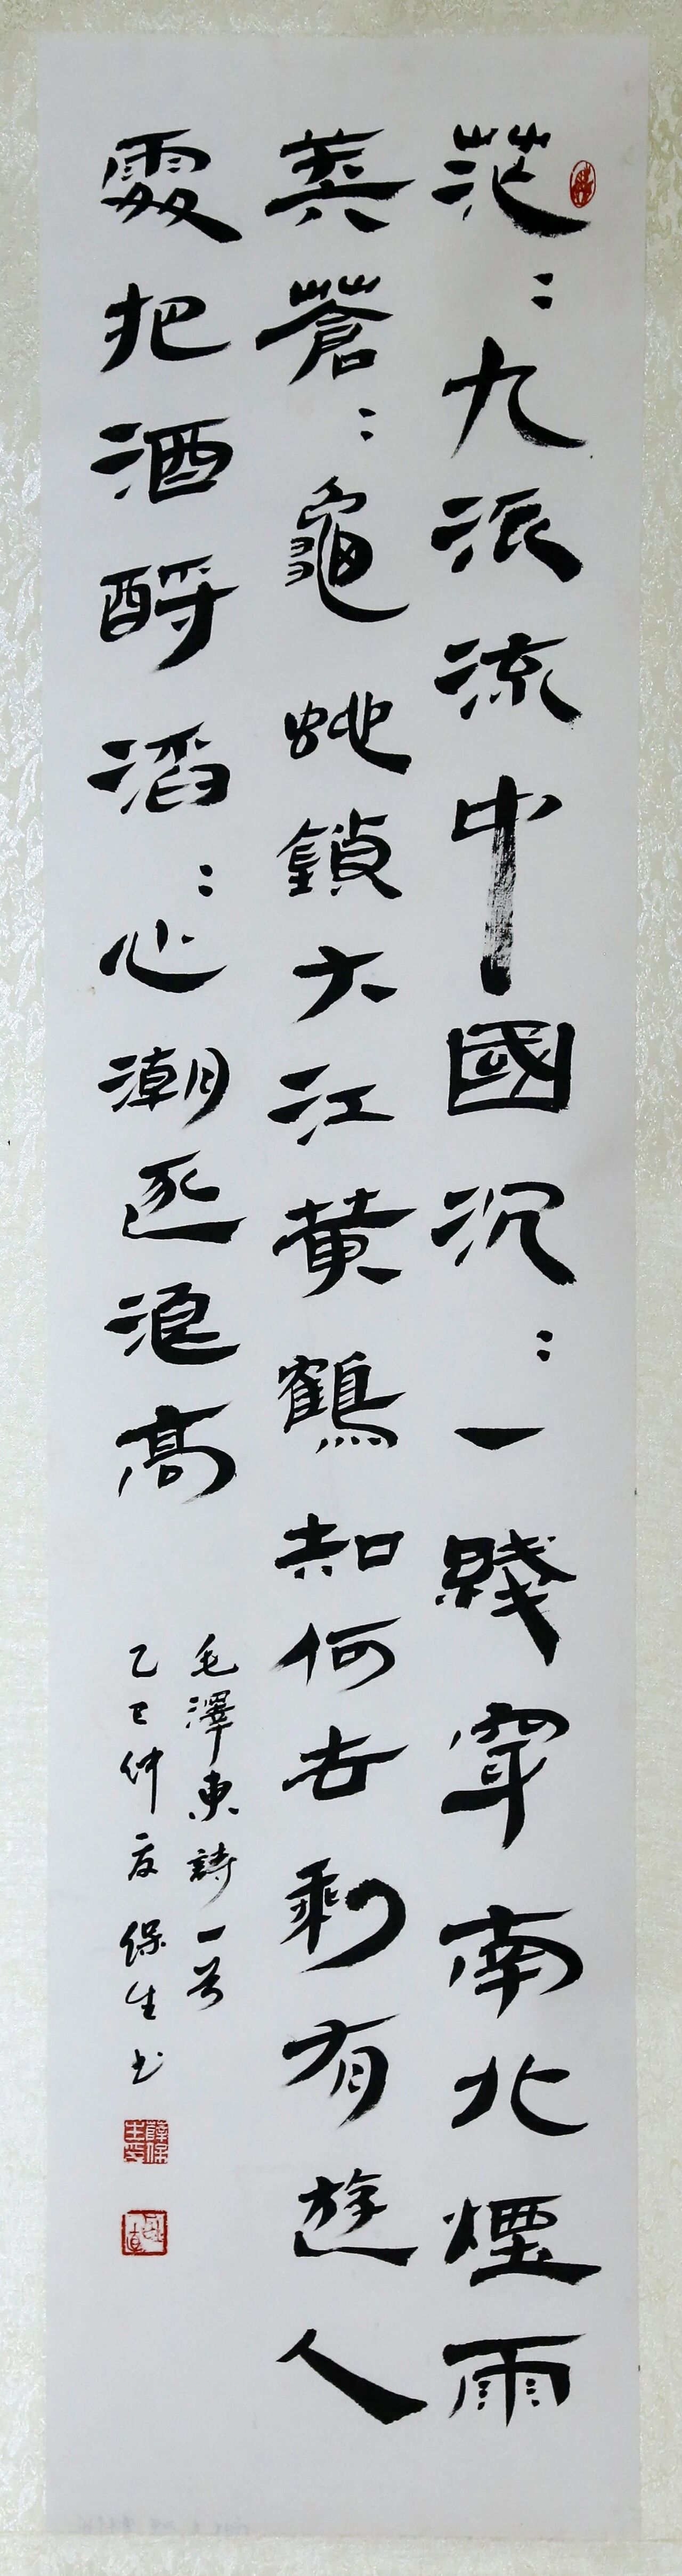 茫々九派流中國沉々一綫穿南北煙雨
莽蒼々龜蛇鎖大江黄鶴知何去剩有遊人
處把酒酹滔々心潮逐浪高
毛澤東詩一首
乙巳仲夏保生书
薛保生印